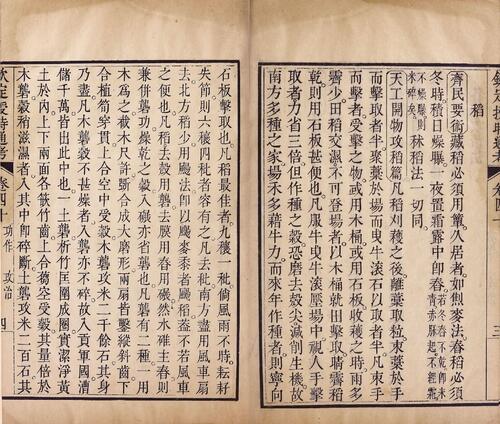 稻
齊民要術藏稻必須用簞久居者如𠜇麥法舂稻必須
冬時積日燥曝一夜置霜露中卽舂若冬舂不乾卽米青赤脉起不經霜
不燥曝則米碎矣秫稻法一切同
天工開物攻稻篇凡稻刈穫之後離藁取粒束藁於手
而擊取者半聚藁於場而曳牛滾石以取者半凡束手
而擊者受擊之物或用木桶或用石板收穫之時雨多
霽少田稻交濕不可登場者以木桶就田擊取晴霽稻
乾則用石板甚便也凡服牛曳牛滾壓場中視人手擊
取者力省三倍但作種之穀恐磨去殼尖減削生機故
南方多種之家場禾多藉牛力而來年作種者則寧向
石板擊取也凡稻最佳者九穰一秕倘風雨不時耘耔
失節則六穰四秕者容有之凡去秕南方盡用風車扇
去北方稻少用颺法卽以颺麥黍者颺稻葢不若風車
之便也凡稻去殼用礱去膜用舂用碾然水碓主舂則
兼倂礱功燥乾之穀入碾亦省礱也凡礱有二種一用
木爲之截木尺許斲合成大磨形兩扇皆鑿縱斜齒下
合植筍穿貫上合空中受穀木礱攻米二千餘石其身
乃盡凡木礱穀不甚燥者入礱亦不碎故入貢軍國漕
儲千萬皆出此中也一土礱析竹匡圍成圈實潔淨黃
土於內上下兩面各嵌竹齒上合篘空受穀其量倍於
木礱穀稍滋濕者入其中卽碎斷土礱攻米二百石其
欽定授時通考 卷四十 功作 攻治 四